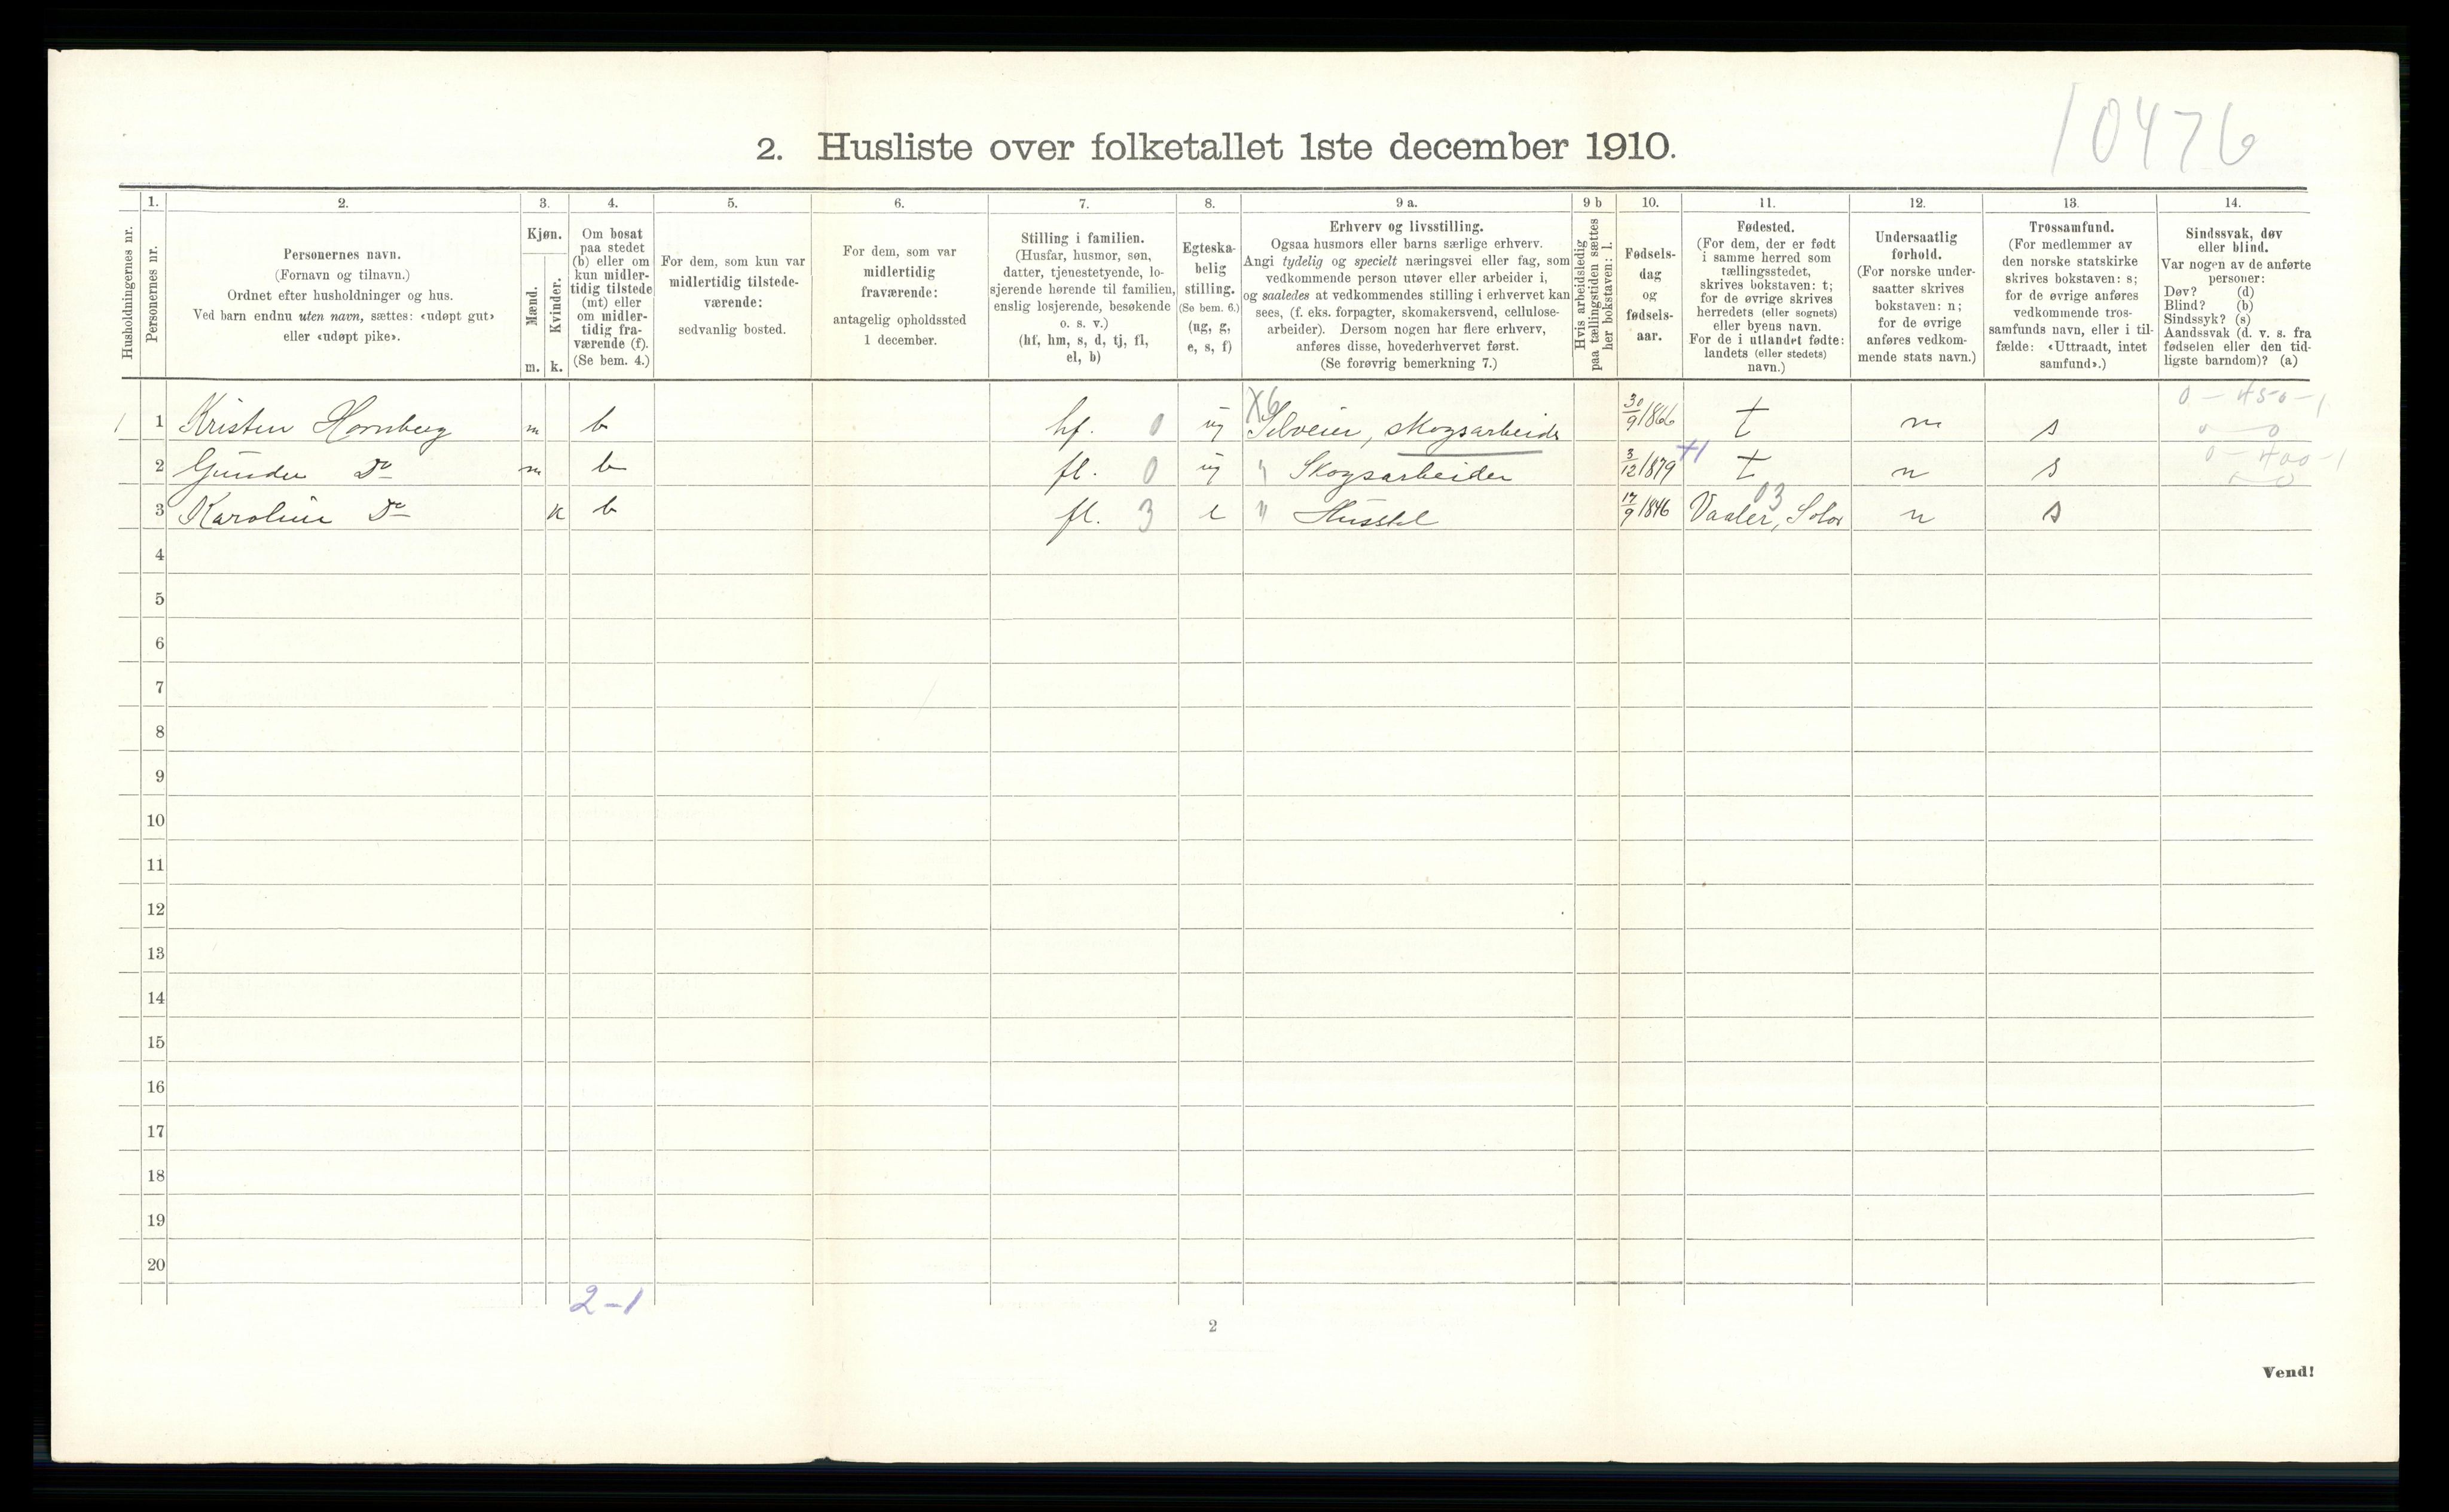 10476
2. Husliste over folketallet 1ste december 1910.
1. 2. 3. 4. 5. 6. 7. 8. 9 a. 9 b 10. 11. 12. 13. 14.
Husholdningernes nr.
Personernes nr.
Personernes navn.
(Fornavn og tilnavn.)
Ordnet efter husholdninger og hus.
Ved barn endnu uten navn, sættes: «udøpt gut»
eller «udøpt pike».
Kjøn.
Mænd.
Kvinder.
m. k.
Om bosat
paa stedet
(b) eller om
kun midler-
tidig tilstede
(mt) eller
om midler-
tidig fra-
værende (f).
(Se bem. 4.)
For dem, som kun var
midlertidig tilstede-
værende:
sedvanlig bosted.
For dem, som var
midlertidig
fraværende:
antagelig opholdssted
1 december.
Stilling i familien.
(Husfar, husmor, søn,
datter, tjenestetyende, lo-
sjerende hørende til familien,
enslig losjerende, besøkende
o. s. v.)
(hf, hm, s, d, tj, fl,
el, b)
Egteska-
belig
stilling.
(Se bem. 6.)
(ug, g,
e, s, f)
Erhverv og livsstilling.
Ogsaa husmors eller barns særlige erhverv.
Angi tydelig og specielt næringsvei eller fag, som
vedkommende person utøver eller arbeider i,
og saaledes at vedkommendes stilling i erhvervet kan
sees, (f. eks. forpagter, skomakersvend, cellulose-
arbeider). Dersom nogen har flere erhverv,
anføres disse, hovederhvervet først.
(Se forøvrig bemerkning 7.)
Hvis arbeidsledig
paa tællingstiden sættes
her bokstaven: l.
Fødsels-
dag
og
fødsels-
aar.
Fødested.
(For dem, der er født
i samme herred som
tællingsstedet,
skrives bokstaven: t;
for de øvrige skrives
herredets (eller sognets)
eller byens navn.
For de i utlandet fødte:
landets (eller stedets)
navn.)
Undersaatlig
forhold.
(For norske under-
saatter skrives
bokstaven: n;
for de øvrige
anføres vedkom-
mende stats navn.)
Trossamfund.
(For medlemmer av
den norske statskirke
skrives bokstaven: s;
for de øvrige anføres
vedkommende tros-
samfunds navn, eller i til-
fælde: «Uttraadt, intet
samfund».)
Sindssvak, døv
eller blind.
Var nogen av de anførte
personer:
Døv? (d)
Blind? (b)
Sindssyk? (s)
Aandssvak (d. v. s. fra
fødselen eller den tid-
ligste barndom)? (a)
X6 0 - 450 - 1
1 1 Kristen Hornberg m b hf. 0 ug Selveier, skogsarbeider 30/9 1866 t n s 0 0
2 Gunder Do m b fl. 0 ug " Skogsarbeider 3/12 1879 +1 t n s 0 - 400 - 1
3 Karoline Do k b fl. 3 e " Husstel 17/9 1846 03 Vaaler, Solør n s
4
5
6
7
8
9
10
11
12
13
14
15
16
17
18
19
20
2-1
2
Vend!